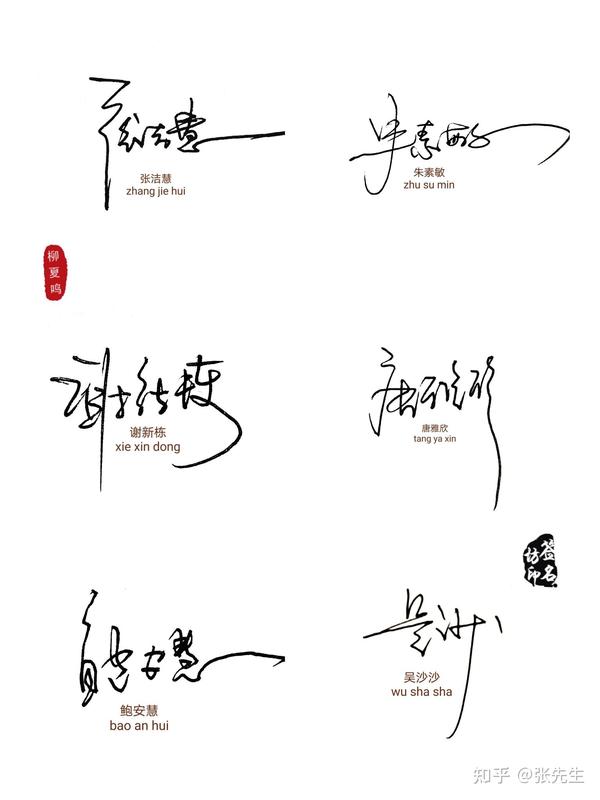 张洁慧
zhang jie hui
朱素敏
zhu su min
柳夏鸣
谢新栋
xie xin dong
唐雅欣
tang ya xin
签名
坊印
鲍安慧
bao an hui
吴沙沙
wu sha sha
知乎 @张先生